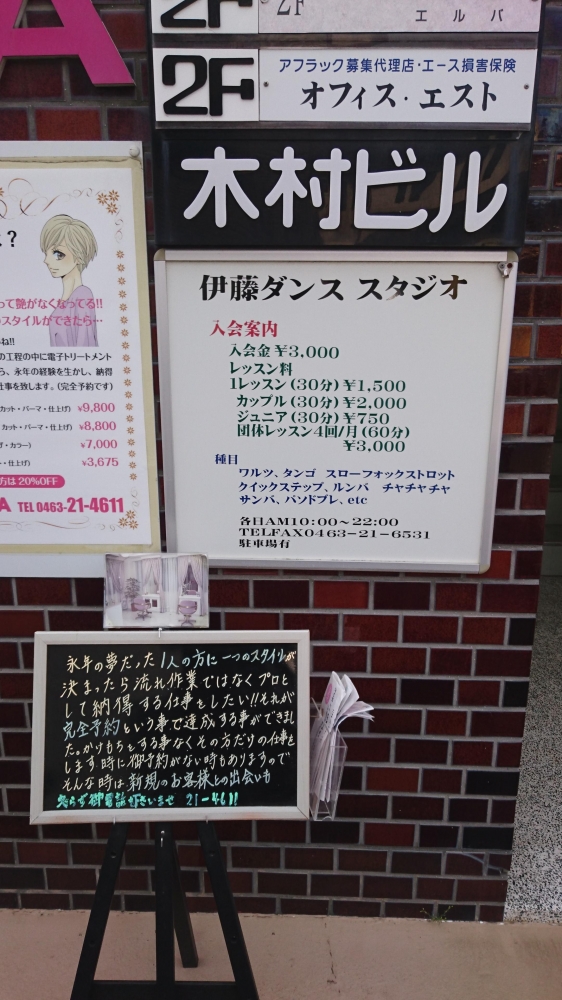 2F
エルバ
A
2F
アフラック募集代理店・エース損害保険
オフィス・エスト
木村ビル
伊藤ダンス スタジオ
入会案内
入会金¥3,000
レッスン料
1レッスン(30分)¥1,500
カップル(30分)¥2,000
ジュニア(30分)¥750
団体レッスン4回/月(60分)
¥3,000
種目
ワルツ、タンゴ スローフォックストロット
クイックステップ、ルンバ チャチャチャ
サンバ、パソドブレ、etc
各日AM10:00〜22:00
TELFAX0463-21-6531
駐車場有
?
って艶がなくなってる!!
スタイルができたら…
ね!!
の工程の中に電子トリートメント
ら、永年の経験を生かし、納得
仕事を致します。(完全予約です)
カット・パーマ・仕上げ) ¥9,800
カット・パーマ・仕上げ) ¥8,800
・カラー) ¥7,000
・仕上げ) ¥3,675
方は20%OFF
A TEL 0463-21-4611
永年の夢だった1人の方に一つのスタイルが
決まったら流れ作業ではなくプロと
して納得する仕事をしたい!!それが
完全予約という事で達成する事ができまし
た。かけもちをする事なくその方だけの仕事を
します。時に御予約がない時もありますので
そんな時は新規のお客様との出会いも
御電話下さいませ 21-4611